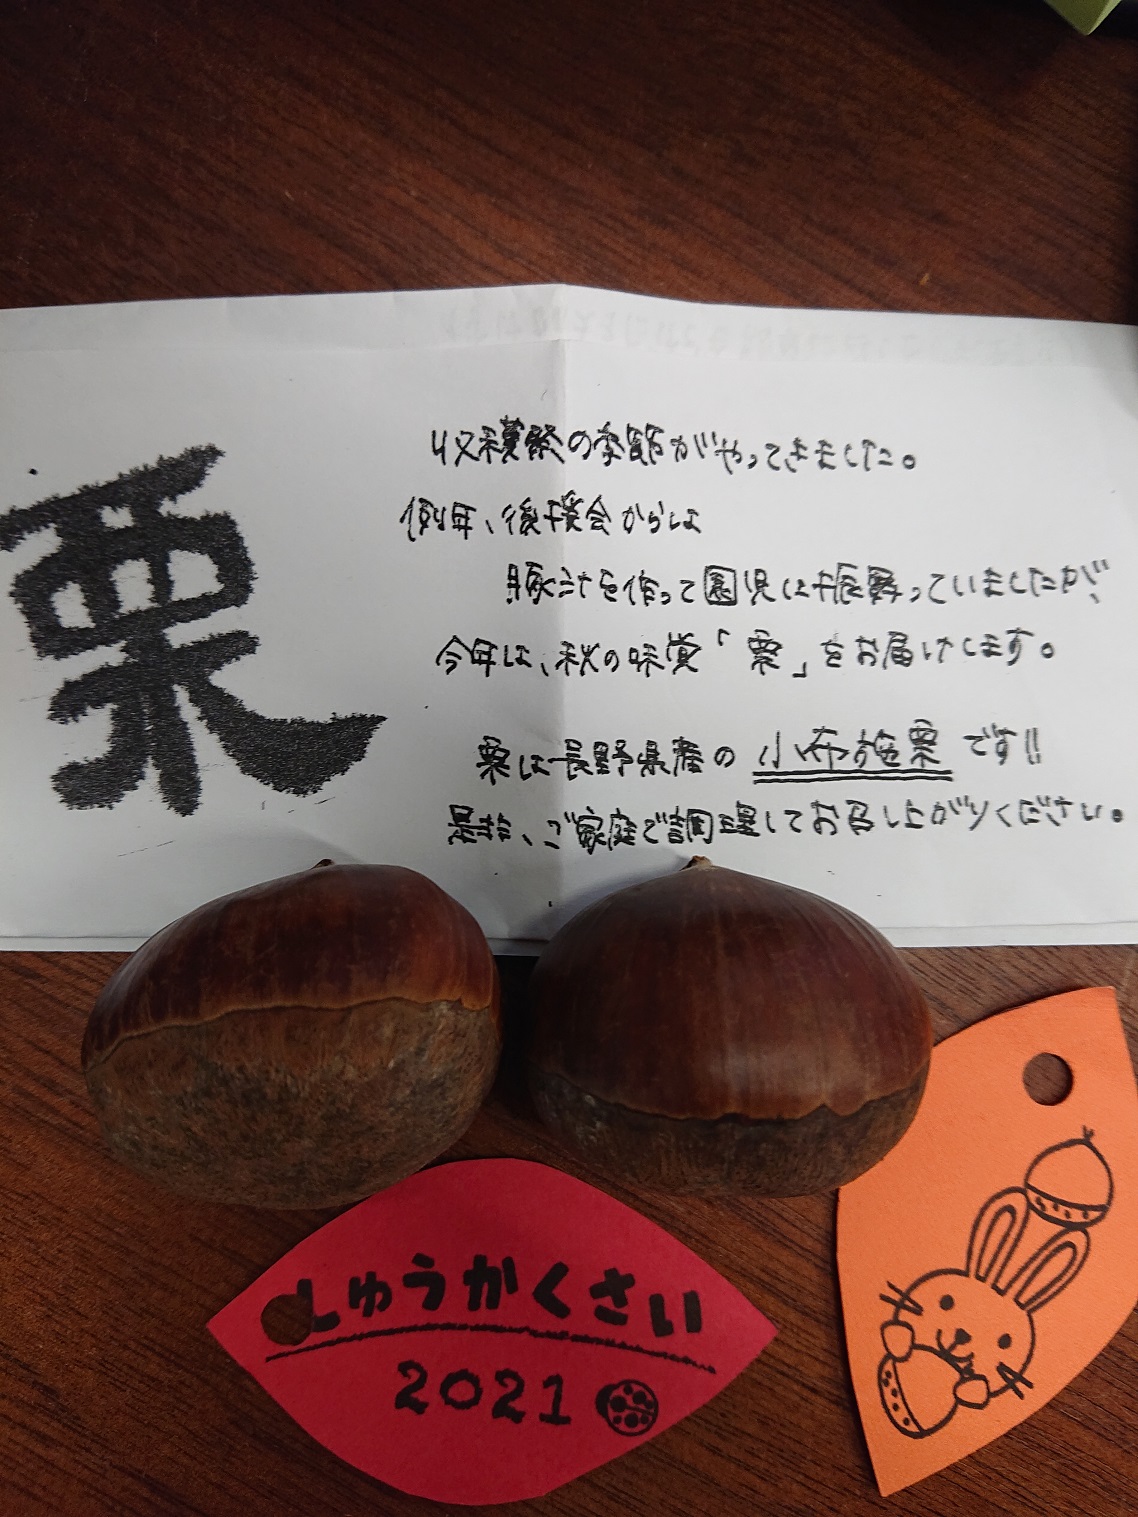 栗
収穫祭の季節がやってきました。
例年、後援会からは
豚汁を作って園児に振舞っていましたが、
今年は、秋の味覚「栗」をお届けします。
栗は長野県産の小布施栗です!!
是非、ご家庭で調理してお召し上がりください。
しゅうかくさい
2021